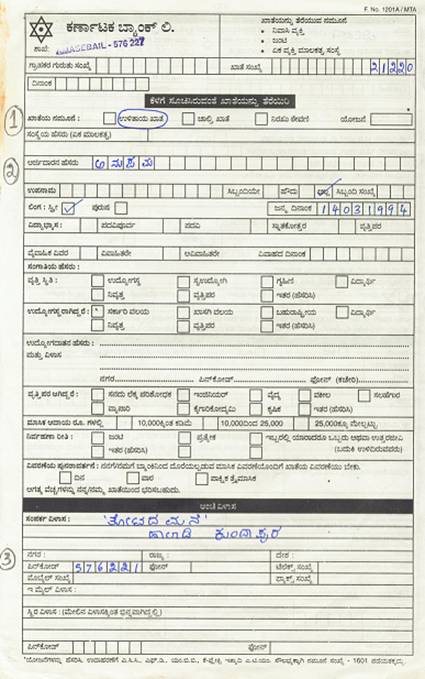 F. No. 1201A / MTA
ಕರ್ಣಾಟಕ ಬ್ಯಾಂಕ್ ಲಿ.
ಖಾತೆಯನ್ನು ತೆರೆಯುವ ನಮೂನೆ
• ನಿವಾಸಿ ವ್ಯಕ್ತಿ
• ಜಂಟಿ
• ಏಕ ವ್ಯಕ್ತಿ ಮಾಲಕತ್ವ ಸಂಸ್ಥೆ
ಶಾಖೆ: - 576 227
ಗ್ರಾಹಕರ ಗುರುತು ಸಂಖ್ಯೆ ಖಾತೆ ಸಂಖ್ಯೆ 21220
ದಿನಾಂಕ
ಕೆಳಗೆ ಸೂಚಿಸಿರುವಂತೆ ಖಾತೆಯನ್ನು ತೆರೆಯಿರಿ
1 ಖಾತೆಯ ನಮೂನೆ : ಉಳಿತಾಯ ಖಾತೆ ಚಾಲ್ತಿ ಖಾತೆ ನಿರಖು ಠೇವಣಿ ಯೋಜನೆ
ಸಂಸ್ಥೆಯ ಹೆಸರು (ಏಕ ಮಾಲಕತ್ವ)
2 ಅರ್ಜಿದಾರನ ಹೆಸರು ಅನುಪಮ
ಉಪನಾಮ ಸಿಬ್ಬಂದಿಯೇ ಹೌದು ಸಿಬ್ಬಂದಿ ಸಂಖ್ಯೆ
ಲಿಂಗ : ಸ್ತ್ರೀ ಪುರುಷ ಜನ್ಮ ದಿನಾಂಕ 14031994
ವಿದ್ಯಾಭ್ಯಾಸ : ಪದವಿಪೂರ್ವ ಪದವಿ ಸ್ನಾತಕೋತ್ತರ ವೃತ್ತಿಪರ
ವೈವಾಹಿಕ ವಿವರ ವಿವಾಹಿತರೇ ಅವಿವಾಹಿತರೇ ವಿವಾಹದ ದಿನಾಂಕ
ಸಂಗಾತಿಯ ಹೆಸರು :
ವೃತ್ತಿ ಸ್ಥಿತಿ : ಉದ್ಯೋಗಸ್ಥ ಸ್ವಉದ್ಯೋಗಿ ಗೃಹಿಣಿ ವಿದ್ಯಾರ್ಥಿ
ನಿವೃತ್ತ ವೃತ್ತಿಪರ ಇತರ (ಹೆಸರಿಸಿ)
ಉದ್ಯೋಗಸ್ಥ ರಾಗಿದ್ದರೆ : ಸರ್ಕಾರಿ ವಲಯ ಖಾಸಗಿ ವಲಯ ಬಹುರಾಷ್ಟ್ರೀಯ ವಿದ್ಯಾರ್ಥಿ
ನಿವೃತ್ತ ವೃತ್ತಿಪರ ಇತರ (ಹೆಸರಿಸಿ)
ಉದ್ಯೋಗದಾತನ ಹೆಸರು :
ಮತ್ತು ವಿಳಾಸ
ನಗರ ಪಿನ್‌ಕೋಡ್ ಫೋನ್ (ಕಚೇರಿ)
ವೃತ್ತಿಪರ ಆಗಿದ್ದರೆ : ಸನದು ಲೆಕ್ಕ ಪರಿಶೋಧಕ ಇಂಜಿನಿಯರ್ ವೈದ್ಯ ವಕೀಲ ಸಲಹೆಗಾರ
ವ್ಯಾಪಾರಿ ಕೈಗಾರಿಕೋದ್ಯಮಿ ಕೃಷಿಕ ಇತರ (ಹೆಸರಿಸಿ)
ಮಾಸಿಕ ಆದಾಯ ರೂ. ಗಳಲ್ಲಿ 10,000ಕ್ಕಿಂತ ಕಡಿಮೆ 10,000ದಿಂದ 25,000 25,000ಕ್ಕೂ ಮೇಲ್ಪಟ್ಟು
ನಿರ್ವಹಣಾ ರೀತಿ : ಜಂಟಿ ಪ್ರತ್ಯೇಕ ಇಬ್ಬರಲ್ಲಿ ಯಾರಾದರೂ ಒಬ್ಬರು ಅಥವಾ ಉತ್ತರಜೀವಿ
ಇತರ (ಹೆಸರಿಸಿ) (ಬದುಕಿ ಉಳಿದಿರುವವರು)
ವಿವರಣೆಯ ಪುನರಾವರ್ತನೆ :
ದಿನ ವಾರ ಪಾಕ್ಷಿಕ ತ್ರೈಮಾಸಿಕ
ಅಂಚೆ ವಿಳಾಸ
ಸಂಪರ್ಕ ವಿಳಾಸ : 'ತೋಟದ ಮನೆ'
ಹಾಲಾಡಿ ಕುಂದಾಪುರ
ನಗರ : ರಾಜ್ಯ : ದೇಶ :
3 ಪಿನ್‌ಕೋಡ್ 576221 ಫೋನ್ ಟೆಲೆಕ್ಸ್ ಸಂಖ್ಯೆ
ಮೊಬೈಲ್ ಸಂಖ್ಯೆ ಫ್ಯಾಕ್ಸ್ ಸಂಖ್ಯೆ
ಇ ಮೈಲ್ ವಿಳಾಸ :
ಸ್ಥಿರ ವಿಳಾಸ : (ಮೇಲಿನ ವಿಳಾಸಕ್ಕಿಂತ ಭಿನ್ನವಾಗಿದ್ದಲ್ಲಿ)
ಪಿನ್‌ಕೋಡ್ ಫೋನ್